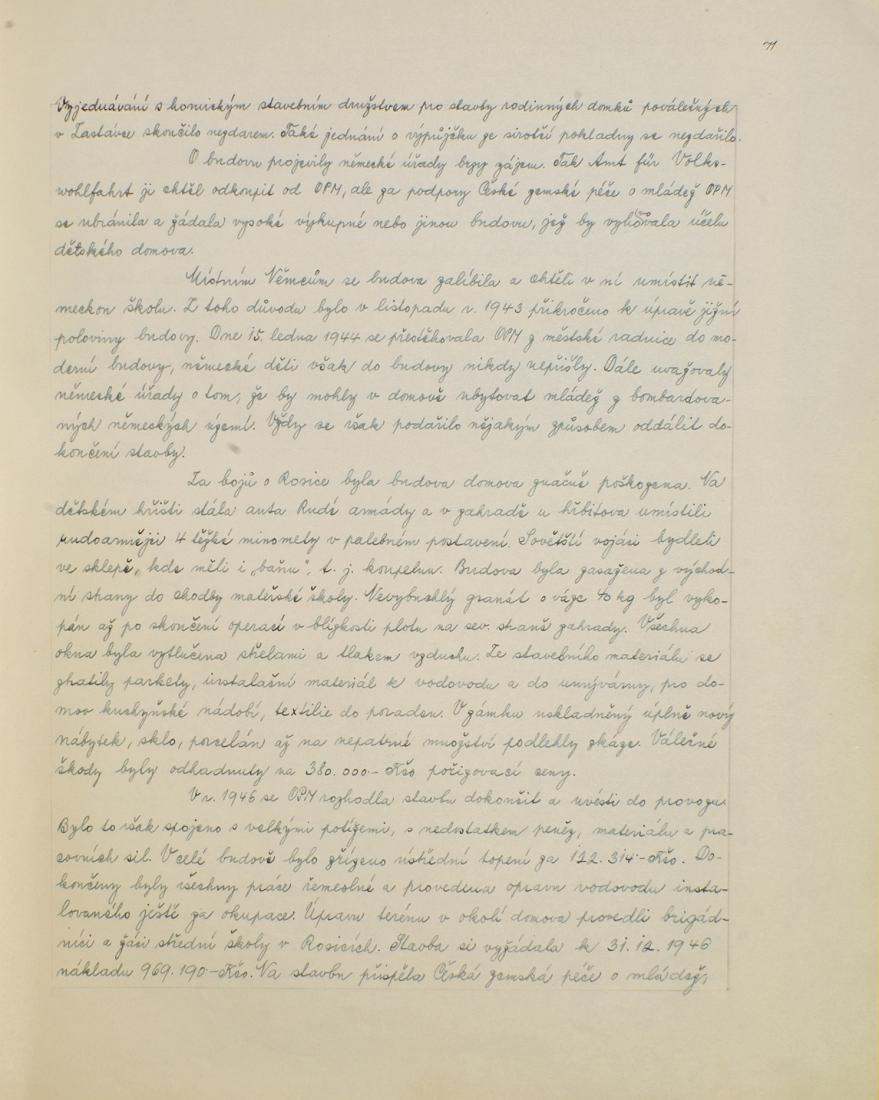 71
Vyjednávání s hornickým stavebním družstvem pro stavby rodinných domků poválečných
v Zastávce skončilo nezdarem. Také jednání o výpůjčku ze sirotčí pokladny se nezdařilo.
O budovu projevily německé úřady brzy zájem. Tak Amt für Volks-
wohlfahrt ji chtěl odkoupit od OPM, ale za podpory České zemské péče o mládež OPM
se ubránila a žádala vysoké výkupné nebo jinou budovu, jež by vyhovovala účelu
dětského domova.
Místním Němcům se budova zalíbila a chtěli v ní umístit ně-
meckou školu. Z toho důvodu bylo v listopadu r. 1943 přikročeno k úpravě jižní
poloviny budovy. Dne 15. ledna 1944 se přestěhovala OPM z městské radnice do mo-
derní budovy, německé děti však do budovy nikdy nepřišly. Dále uvažovaly
německé úřady o tom, že by mohly v domově ubytovat mládež z bombardova-
ných německých území. Vždy se však podařilo nějakým způsobem oddálit do-
končení stavby.
Za bojů o Rosice byla budova domova značně poškozena. Na
dětském hřišti stála auta Rudé armády a v zahradě u hřbitova umístili
rudoarmějci 4 těžké minomety v palebném postavení. Sovětští vojáci bydleli
ve sklepě, kde měli i „baňu", t. j. koupelnu. Budova byla zasažena z východ-
ní strany do chodby mateřské školy. Nevybuchlý granát o váze 40 kg byl vyko-
pán až po skončení operací v blízkosti plotu na sev. straně zahrady. Všechna
okna byla vytlučena střelami a tlakem vzduchu. Ze stavebního materiálu se
ztratily parkety, instalační materiál k vodovodu a do umývárny, pro do-
mov kuchyňské nádobí, textilie do poraden. V zámku uskladněný úplně nový
nábytek, sklo, porcelán až na nepatrné množství podlehly zkáze. Válečné
škody byly odhadnuty na 380.000-Kčs pořizovací ceny.
V r. 1946 se OPM rozhodla stavbu dokončit a uvésti do provozu.
Bylo to však spojeno s velkými potížemi, s nedostatkem peněz, materiálu a pra-
covních sil. V celé budově bylo zřízeno ústřední topení za 122.314-Kčs. Do-
končeny byly všechny práce řemeslné a provedena oprava vodovodu insta-
lovaného ještě za okupace. Úpravu terénu v okolí domova provedli brigád-
níci a žáci střední školy v Rosicích. Stavba si vyžádala k 31. 12. 1946
nákladu 969.190-Kčs. Na stavbu přispěla Česká zemská péče o mládež,